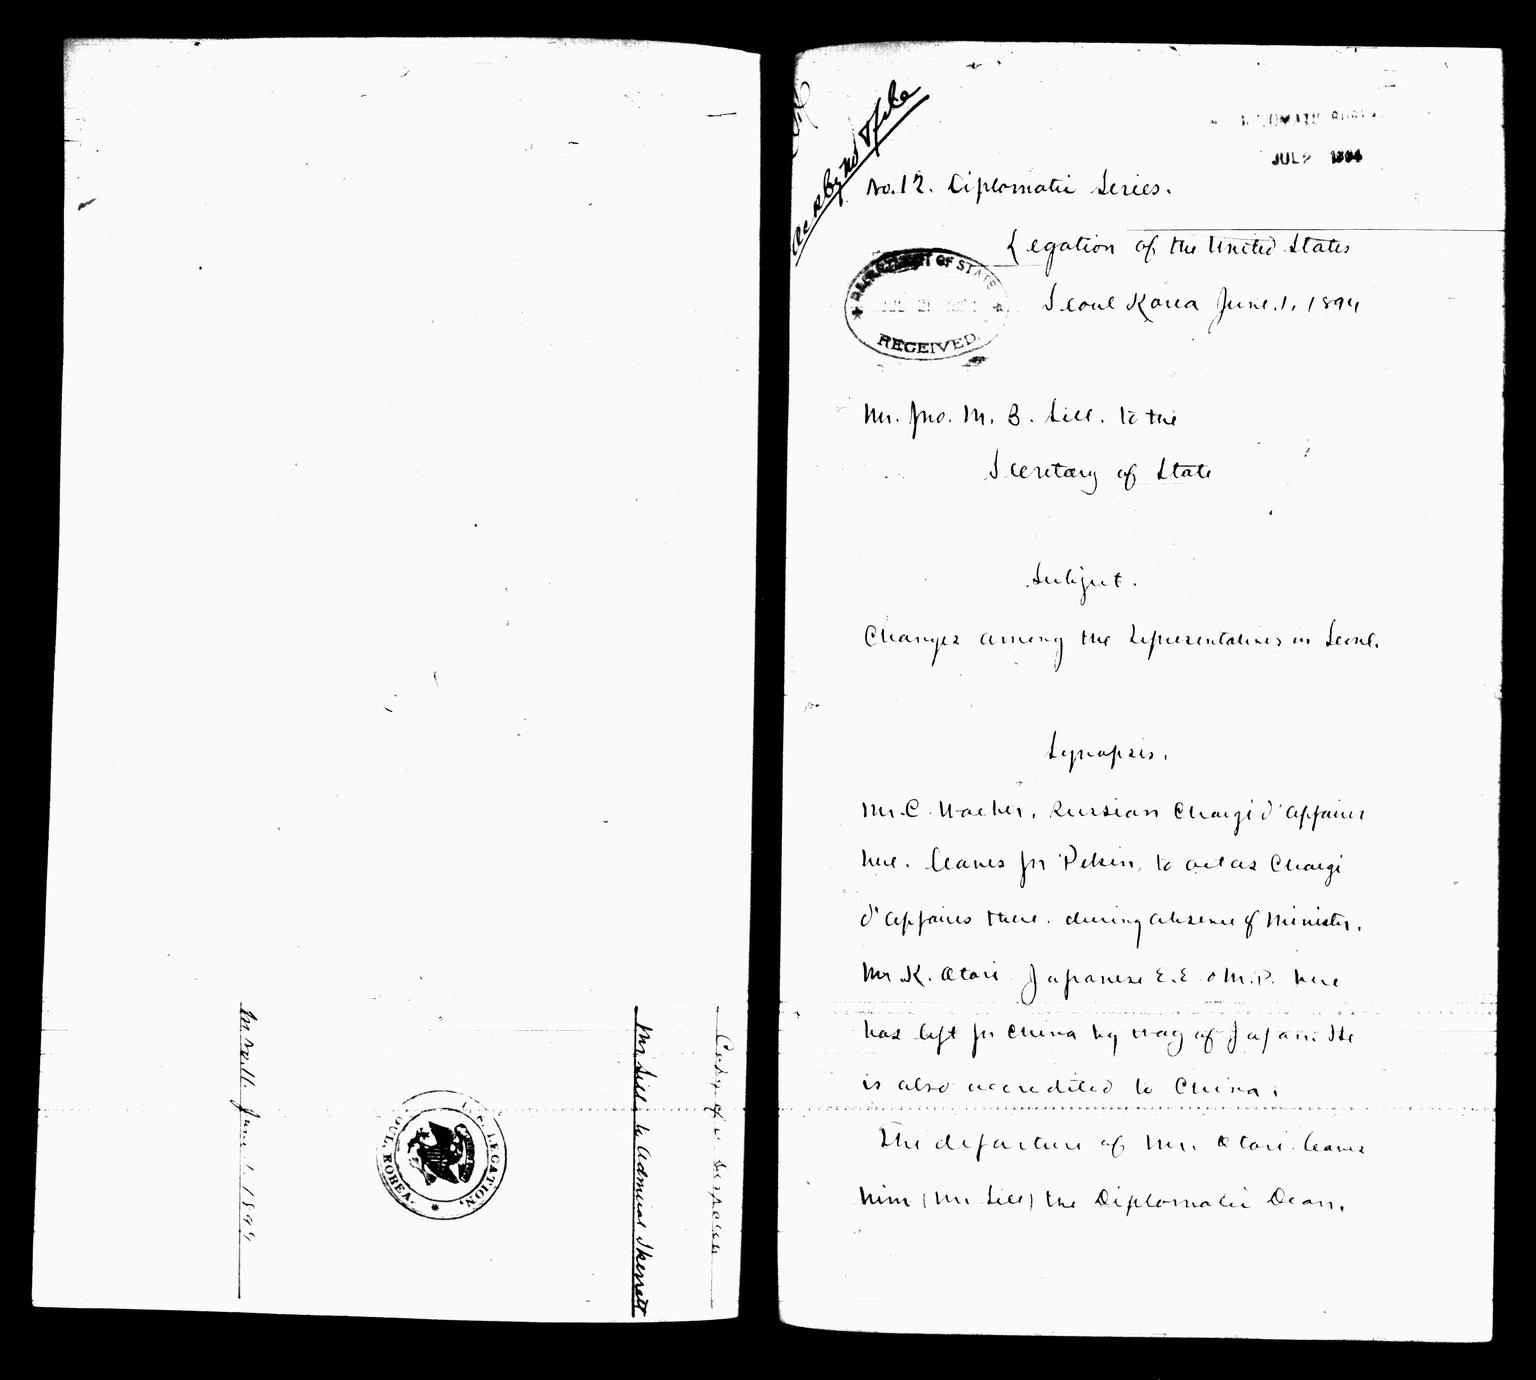 Copy of a despatch
Mr. Sill to Admiral Skerrett
U.S. LEGATION,
SEOUL, KOREA.
June 1, 1894
Ack by No & file
DIPLOMATIC BUREAU
JUL 2 1894
No. 12. Diplomatic Series.
Legation of the United States
Seoul Korea June. 1, 1894
DEPARTMENT OF STATE
RECEIVED
Mr. Jno. M. B. Sill. to the
Secretary of State
Subject.
Changes among the Representatives in Seoul.
Synopsis.
Mr. C. Waeber, Russian Chargé d'affaires
here. leaves for Pekin, to act as Chargé
d'affaires there. during absence of Minister.
Mr K. Otori Japanese E.E. & M.P. here
has left for China by way of Japan. He
is also accredited to China.
The departure of Mr. Otori leaves
him (Mr Sill) the Diplomatic Dean.